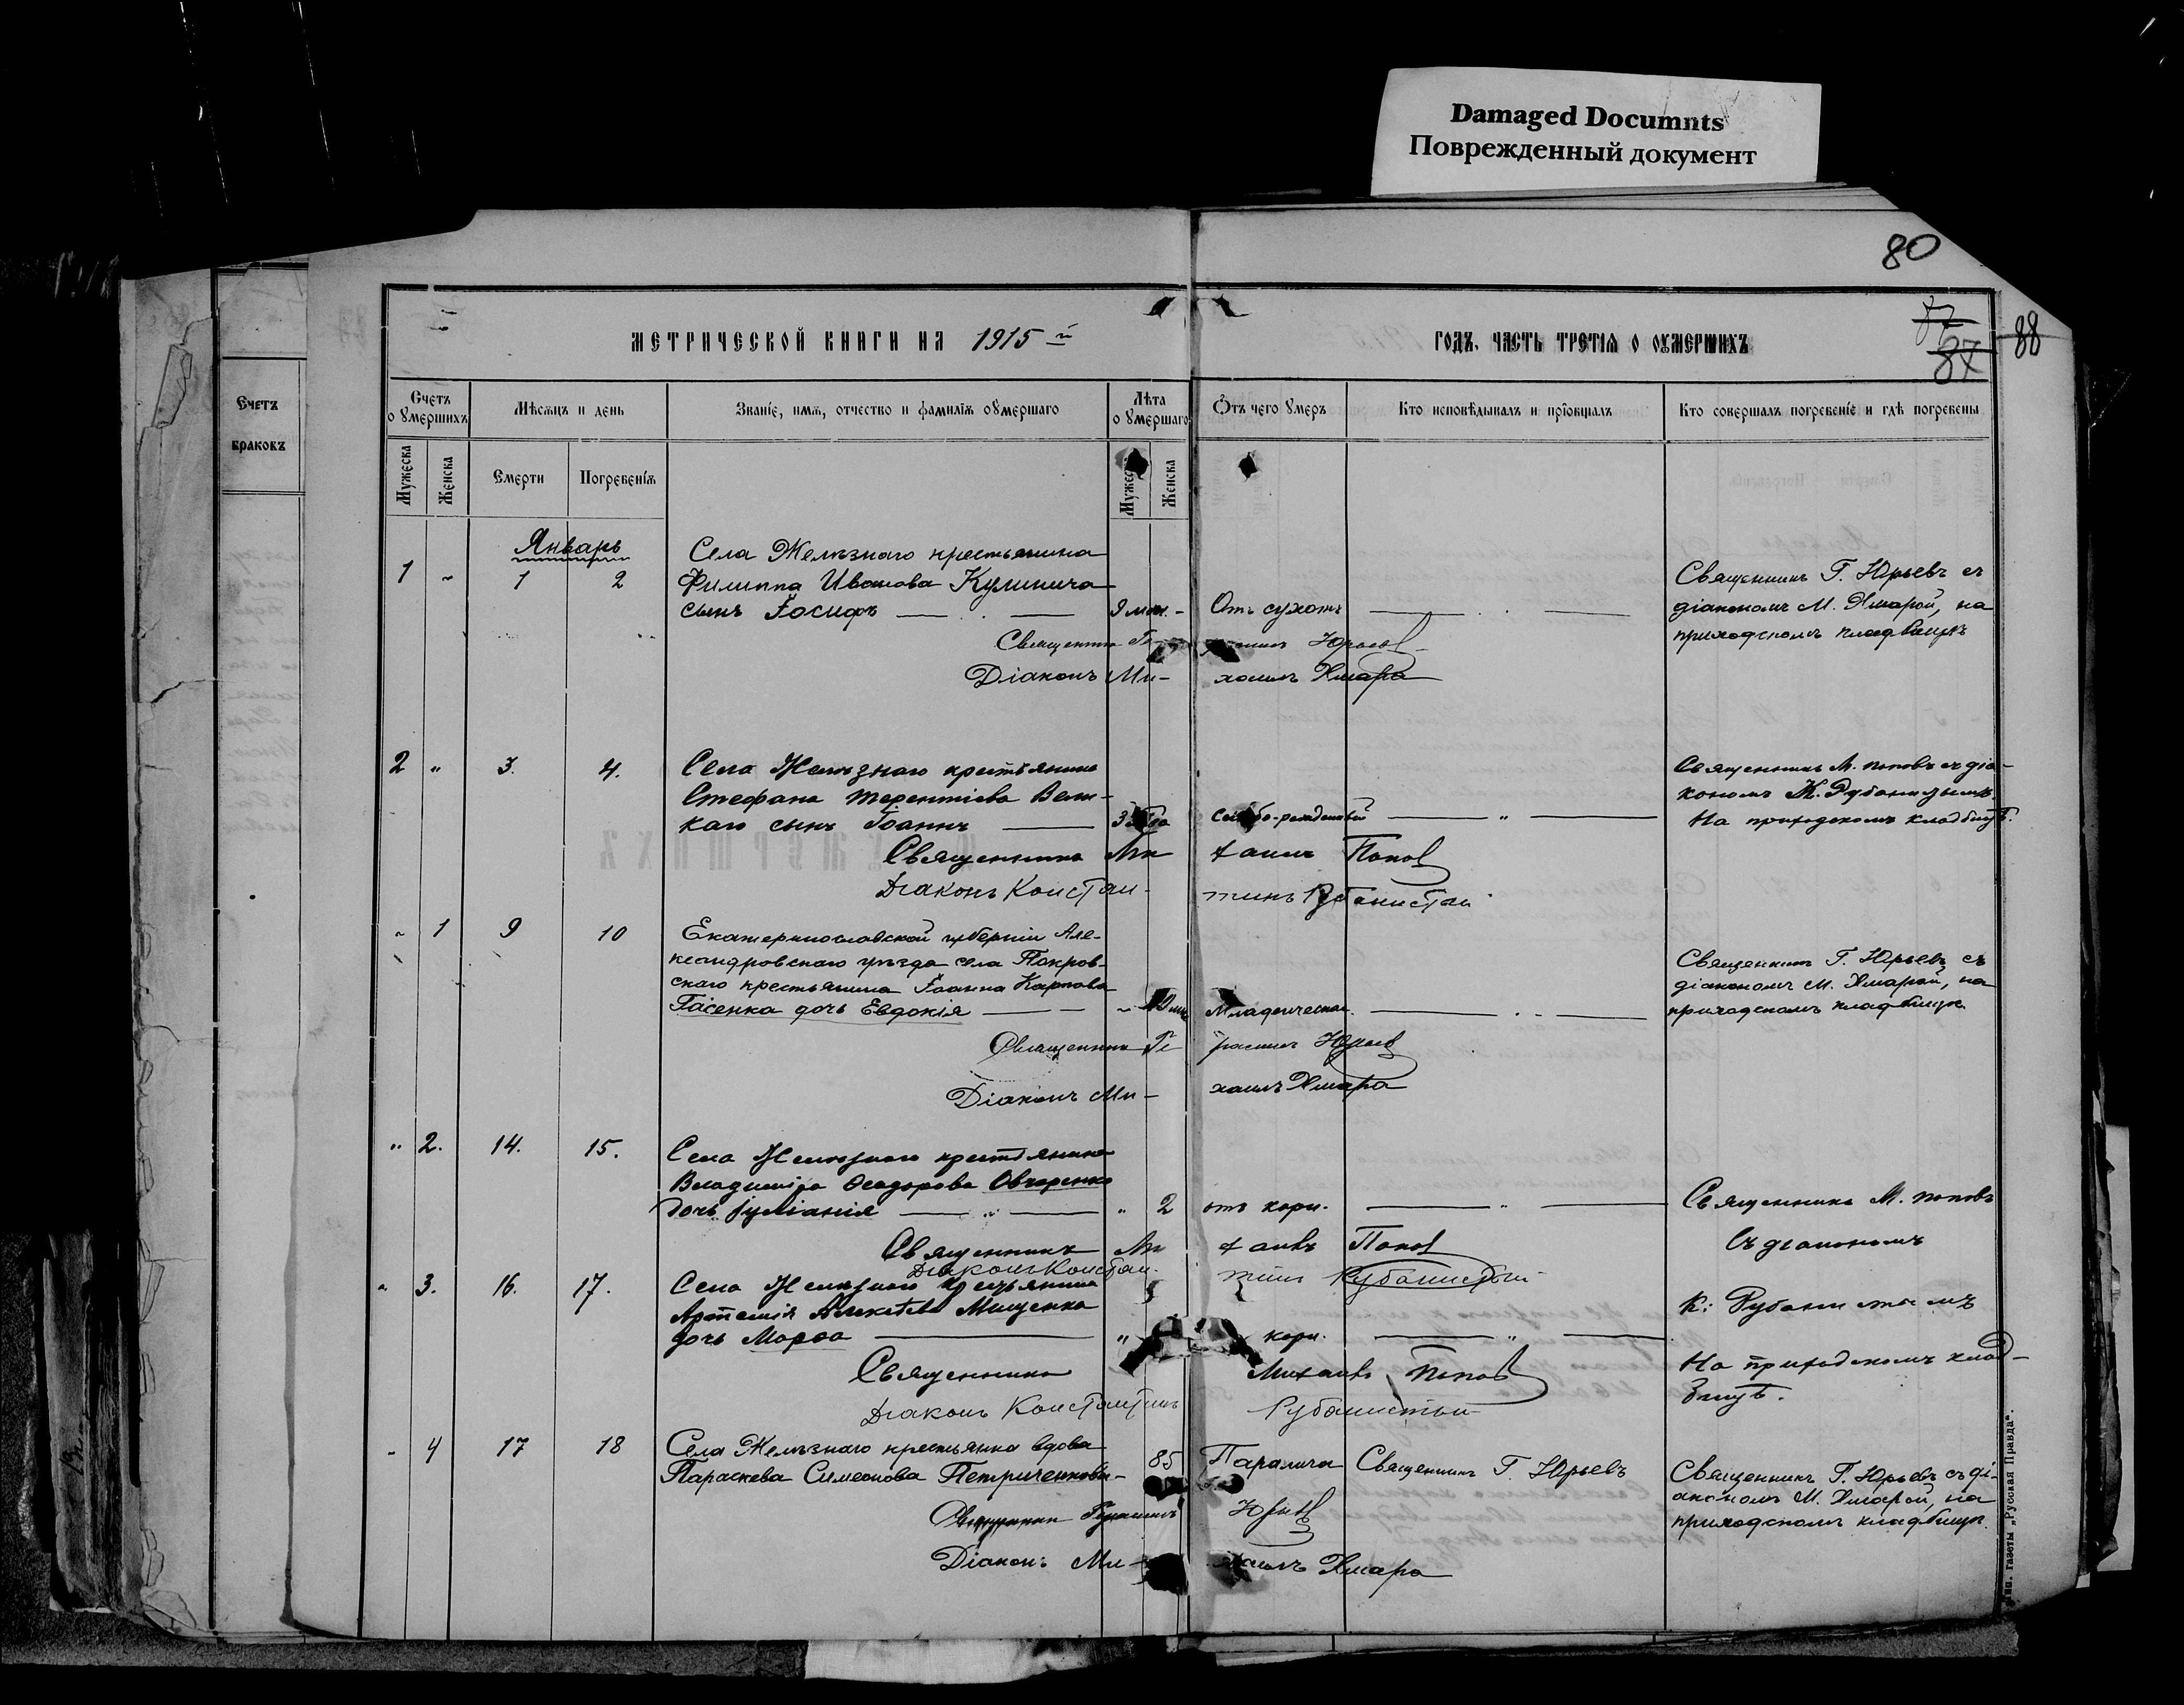 Damaged Documnts
Поврежденный документ
80
МЕТРИЧЕСКОЙ КНИГИ НА 1915 й
ГОДЪ. ЧАСТЬ ТРЕТІЯ О ОУМЕРШИХЪ
87
87
88
Счетъ браковъ
Счетъ о умершихъ
Мѣсяцъ и день
Званіе, имя, отчество и фамилія оумершаго
Лѣта оумершаго
Отъ чего умеръ
Кто исповѣдывалъ и пріобщалъ
Кто совершалъ погребеніе и гдѣ погребены
Мужеска
Женска
Смерти
Погребенія
Мужес
Женска
Январь
Села Желѣзнаго крестьянина
1 " 1 2 Филиппа Иванова Кулинича
сынъ Іосифъ — 9 мѣс. - Отъ сухотъ —
Священникъ Г. Юрьевъ съ
діакономъ М. Хмарой, на
приходскомъ кладбищѣ
Священникъ Ге Юрьевъ
Діаконъ Ми- хаилъ Хмара
2 " 3. 4. Села Желѣзнаго крестьянина
Стефана Терентіева Вели-
каго сынъ Іоаннъ — слабо-рожденный — " —
Священникъ М. Поповъ съ діа-
кономъ К. Рубанистымъ.
На приходскомъ кладбищѣ.
Священникъ Ми хаилъ Поповъ
Діаконъ Констан- тинъ Рубанистый
" 1 9 10 Екатеринославской губерніи Але-
ксандровскаго уѣзда села Покров-
скаго крестьянина Іоанна Карпова
Гасенка дочь Евдокія — Младенческая. —
Священникъ Г. Юрьевъ съ
діакономъ М. Хмарой, на
приходскомъ кладбищѣ
Священникъ Ге расимъ Юрьевъ
Діаконъ Ми- хаилъ Хмара
" 2. 14. 15. Села Желѣзнаго крестьянина
Владиміра Ѳеодорова Овчаренко
дочь Іуліанія — " 2 отъ кори. — " —
Священникъ Ми хаилъ Поповъ
Діаконъ Констан- тинъ Рубанистый
Священникъ М. Поповъ
съ діакономъ
К. Рубанистымъ
На приходскомъ клад-
бищѣ.
" 3. 16. 17. Села Желѣзнаго крестьянина
Артемія Алексѣева Мищенка
дочь Марѳа — " кори. — " —
Священникъ Михаилъ Поповъ
Діаконъ Константинъ Рубанистый
- 4 17 18 Села Желѣзнаго крестьянка вдова
Параскева Симеонова Петриченкова- 85 Паралича Священникъ Г. Юрьевъ
Священникъ Г. Юрьевъ съ ді-
акономъ М. Хмарой, на
приходскомъ кладбищѣ.
Священникъ Герасимъ Юрьевъ
Діаконъ Ми- хаилъ Хмара
Тип. газеты „Русская Правда“.